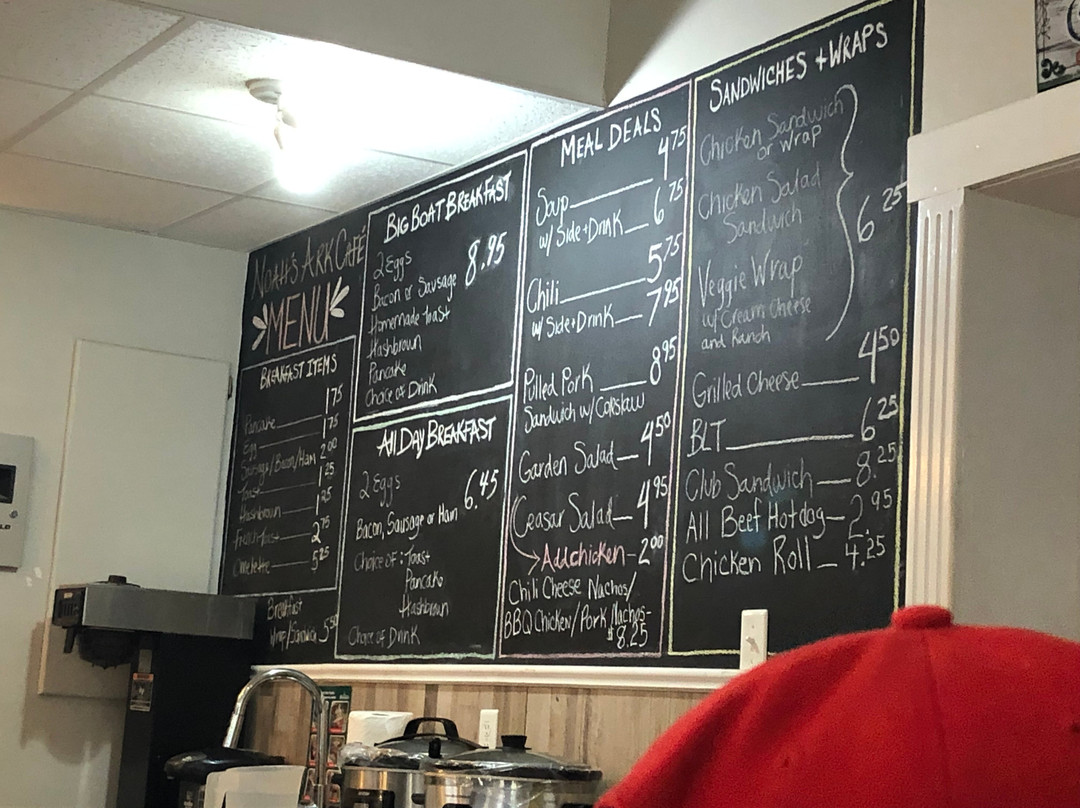 NOAH'S ARK CAFÉ
MENU
BREAKFAST ITEMS
Pancake 1.75
Egg 1.75
Sausage/Bacon/Ham 2.00
Toast 1.25
Hashbrown 1.25
French Toast 2.75
Omelette 5.25
Breakfast
Wrap/Sandwich 5.50
BIG BOAT BREAKFAST
8.95
2 Eggs
Bacon or Sausage
Homemade Toast
Hashbrown
Pancake
Choice of Drink
All DAY BREAKFAST
2 Eggs 6.45
Bacon, Sausage or Ham
Choice of: Toast
Pancake
Hashbrown
Choice of Drink
MEAL DEALS
Soup 4.75
w/ Side + Drink 6.75
Chili 5.75
w/ Side + Drink 7.95
Pulled Pork 8.95
Sandwich w/ Coleslaw
Garden Salad 4.50
Ceasar Salad 4.95
Add chicken - 2.00
Chili Cheese Nachos/
BBQ Chicken/Pork Nachos-
$8.25
SANDWICHES + WRAPS
Chicken Sandwich
or Wrap
Chicken Salad
Sandwich
6.25
Veggie Wrap
w/ Cream Cheese
and Ranch
Grilled Cheese 4.50
BLT 6.25
Club Sandwich 8.25
All Beef Hotdog 2.95
Chicken Roll 4.25